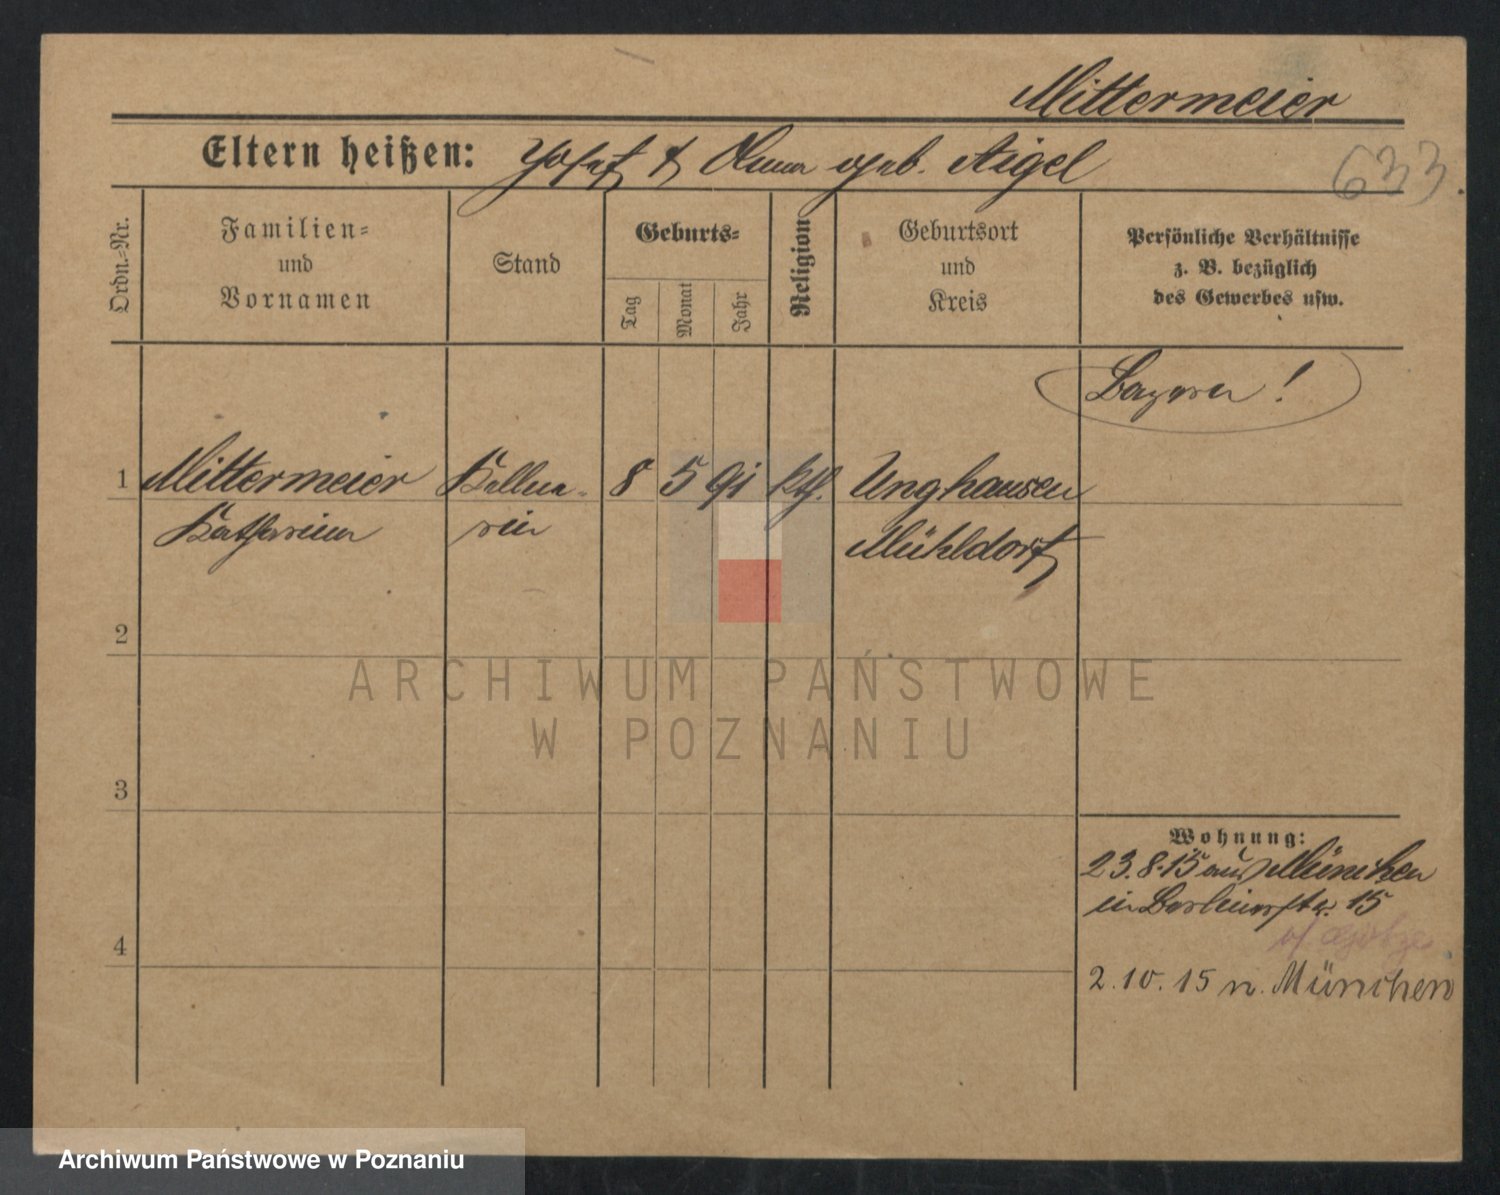 Mittermeier
Eltern heißen: Josef & Anna geb. Aigel
633.
Ordn.-Nr.
Familien-
und
Vornamen
Stand
Geburts-
Tag
Monat
Jahr
Religion
Geburtsort
und
Kreis
Persönliche Verhältnisse
z. B. bezüglich
des Gewerbes usw.
Bayern!
1 Mittermeier Kellne- 8 5 91 kth. Unghausen
Katharina rin Mühldorf
2
ARCHIWUM PAŃSTWOWE
W POZNANIU
3
Wohnung:
23.8.15 aus München
in Berlinerstr. 15
4
2.10.15 n. München
Archiwum Państwowe w Poznaniu